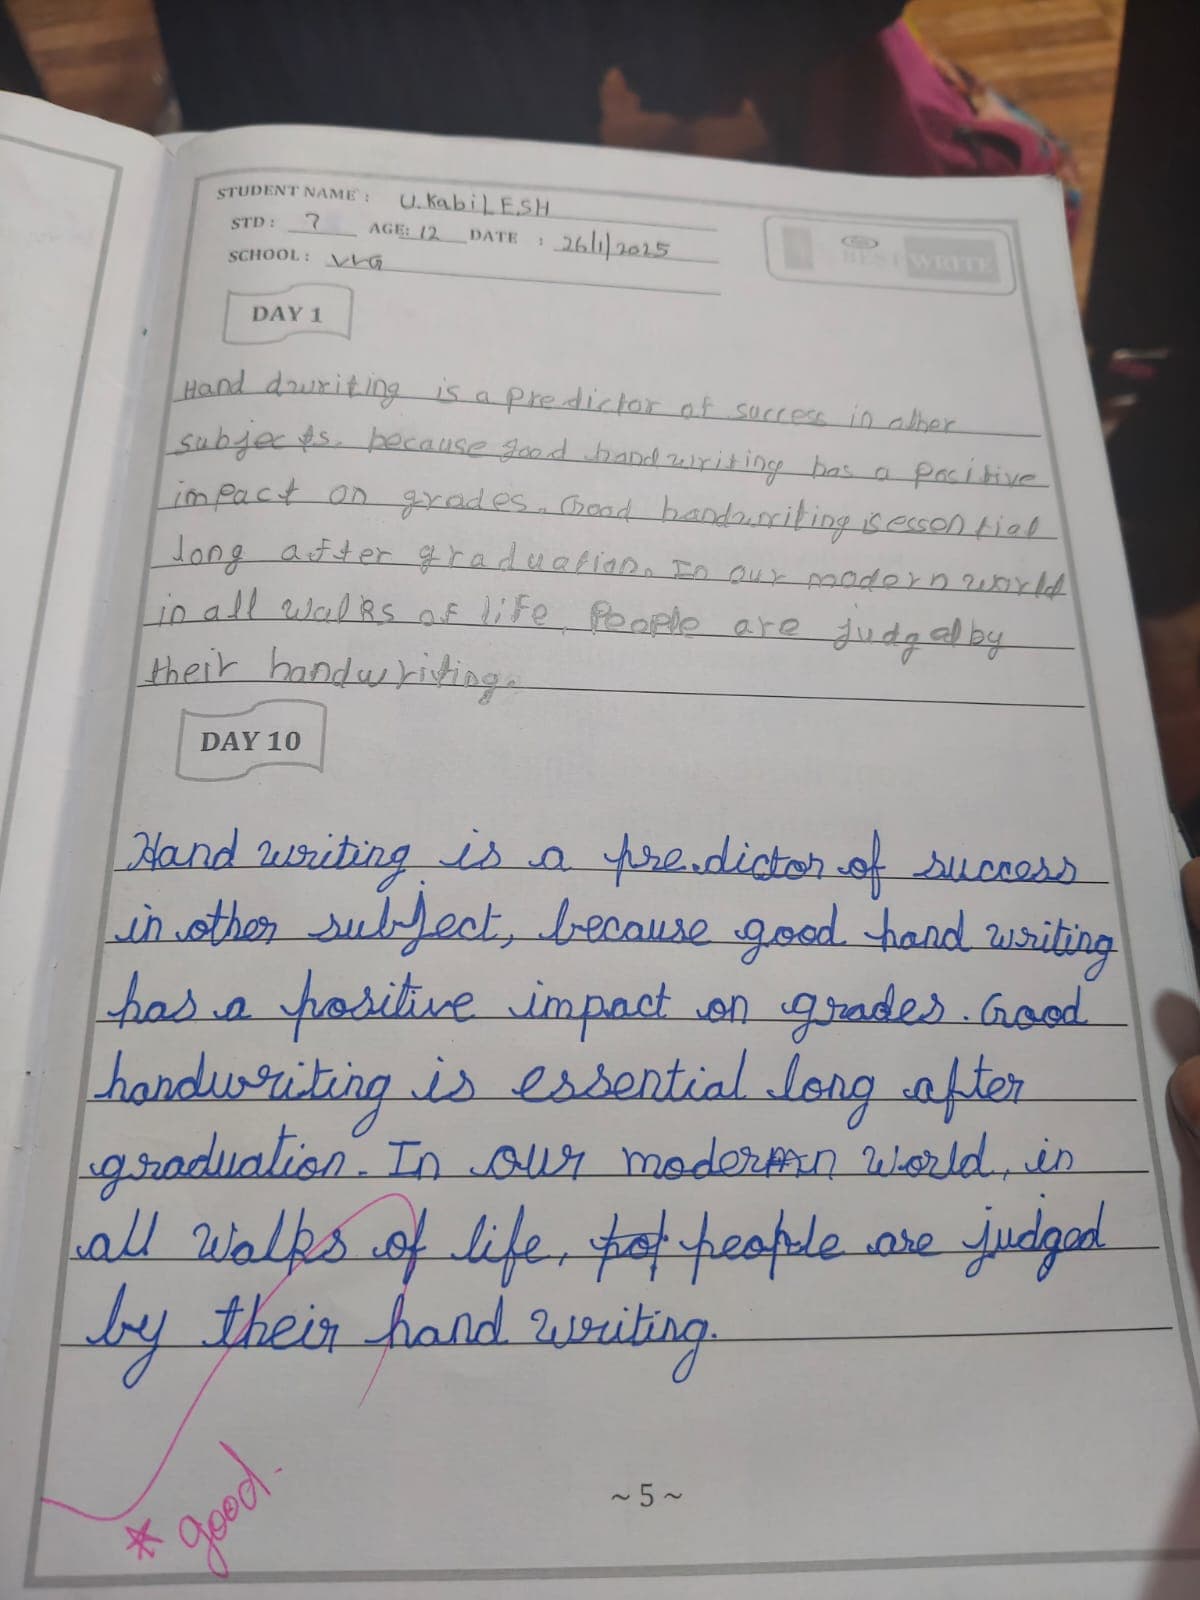 STUDENT NAME : U.KabiLESH
STD : 7 AGE: 12 DATE : 26/1/2025
SCHOOL : VLG
BEST WRITE
DAY 1
Hand dwriting is a predictor of success in other
subjects. because good handwriting has a pocitive
impact on grades. Good handwriting is essontial
long after graduation. In our modern world
in all walks of life, People are judged by
their handwriting.
DAY 10
Hand writing is a predictor of success
in other subject, because good hand writing
has a positive impact on grades. Good
handwriting is essential long after
graduation. In our modern world, in
all walks of life, people are judged
by their hand writing.
good.
~ 5 ~